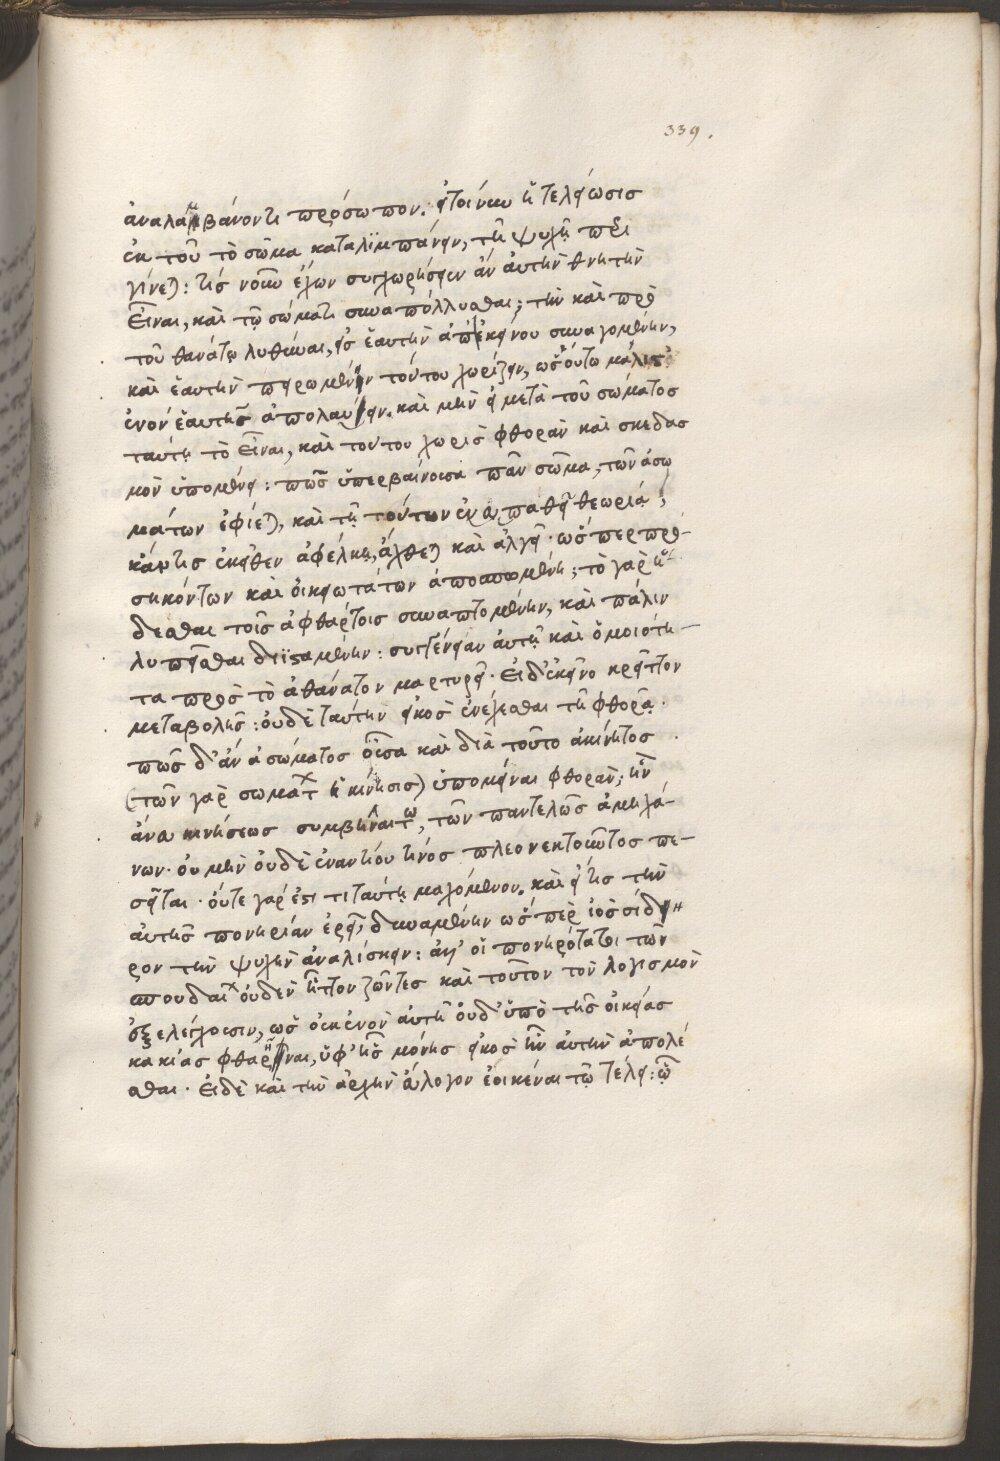 339.
ἀναλαμβάνοντι πρόσωπον. εἰ τοίνυν ἡ τελείωσις
ἐκ τοῦ τὸ σῶμα καταλϊμπάνειν, τῇ ψυχῇ περι
γίνεται: τίς νοῦν ἔχων συγχωρήσειεν ἂν αὐτὴν θνητὴν
εἶναι, καὶ τῷ σώματι συναπόλλυσθαι; τὴν καὶ πρὸ
τοῦ θανάτου λυθῆναι, εἰς ἑαυτὴν ἀπ' ἐκείνου συναγομένην,
καὶ ἑαυτὴν πειρωμένην τούτου χωρίζειν, ὡς οὕτω μάλιστ'
ἐνὸν ἑαυτῆς ἀπολαύειν. καὶ μὴν εἰ μετὰ τοῦ σώματος
ταύτῃ τὸ εἶναι, καὶ τούτου χωρὶς φθορὰν καὶ σκεδασ
μὸν ὑπομένει: πῶς ὑπερβαίνουσα πᾶν σῶμα, τῶν ἀσω
μάτων ἐφίεται, καὶ τῇ τούτων εὐπαθεῖ θεωρίᾳ;
κἄν τις ἐκεῖθεν ἀφέλκῃ, ἄχθεται καὶ ἀλγεῖ. ὥσπερ προ-
σηκόντων καὶ οἰκειοτάτων ἀποσπωμένη; τὸ γὰρ ἥ-
δεσθαι τοῖς ἀφθάρτοις συναπτομένην, καὶ πάλιν
λυπεῖσθαι διϊσταμένην: συγγένειαν αὐτῇ καὶ ὁμοιότη-
τα πρὸς τὸ ἀθάνατον μαρτυρεῖ. εἰ δ' ἐκεῖνο κρεῖττον
μεταβολῆς: οὐδὲ ταύτην εἰκὸς ἐνέχεσθαι τῇ φθορᾷ.
πῶς δ' ἂν ἀσώματος οὖσα καὶ διὰ τοῦτο ἀκίνητος
(τῶν γὰρ σωμάτων ἡ κίνησις) ὑπομεῖναι φθοράν; ἣν
ἄνευ κινήσεως συμβῆναί τω, τῶν παντελῶς ἀμηχά-
νων. οὐ μὴν οὐδὲ ἐναντίου τινὸς πλεονεκτοῦντος πε-
σεῖται. οὔτε γάρ ἐστι τι ταύτῃ μαχόμενον. καὶ εἴ τις τὴν
αὐτῆς πονηρίαν ἐρεῖ, δυναμένην ὥσπερ ἰὸς σίδη
ρον τὴν ψυχὴν ἀναλίσκειν: ἀλλ' οἱ πονηρότατοι τῶν
σπουδαίων οὐδὲν ἧττον ζῶντες καὶ τοῦτον τὸν λογισμὸν
ἐξελέγχουσιν, ὡς οὐκ ἐνὸν αὐτῇ οὐδ' ὑπὸ τῆς οἰκείας
κακίας φθαρῆναι, ὑφ' ἧς μόνης εἰκὸς ἦν αὐτὴν ἀπολέ
σθαι. εἰ δὲ καὶ τὴν ἀρχὴν ἄλογον ἐοικέναι τῷ τέλει: ᾧ